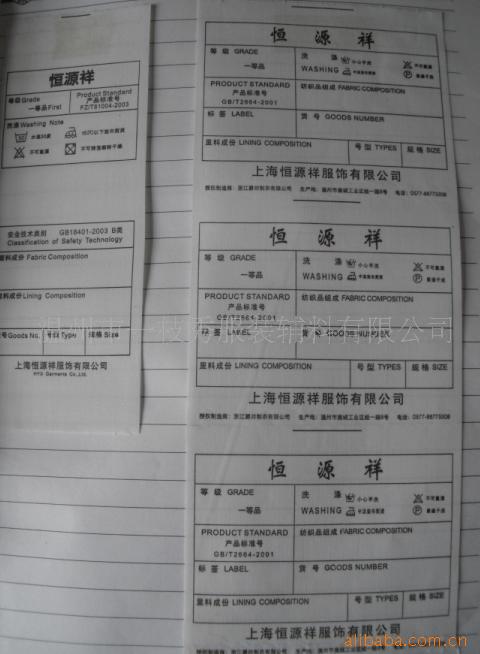 恒源祥
等级Grade
一等品First
Product Standard
产品标准号
FZ/T81004-2003
洗涤Washing Note
水温30度
不可氯漂
不可转笼翻转干燥
安全技术类别 GB18401-2003 B类
Classification of Safety Technology
面料成份 Fabric Composition
里料成份Lining Composition
货号Goods No.
号型Type
规格/Size
上海恒源祥服饰有限公司
HYX Garments Co.,Ltd.
恒源祥
等 级 GRADE
一等品
洗 涤
WASHING
小心手洗
不可氯漂
PRODUCT STANDARD
产品标准号
GB/T2664-2001
纺织品组成 FABRIC COMPOSITION
标 签 LABEL
货 号 GOODS NUMBER
里料成份 LINING COMPOSITION
号 型 TYPES
规 格 SIZE
上海恒源祥服饰有限公司
恒源祥
等 级 GRADE
一等品
洗 涤
WASHING
小心手洗
不可氯漂
PRODUCT STANDARD
产品标准号
GB/T2664-2001
纺织品组成 FABRIC COMPOSITION
标 签 LABEL
货 号 GOODS NUMBER
里料成份 LINING COMPOSITION
号 型 TYPES
规 格 SIZE
上海恒源祥服饰有限公司
恒源祥
等 级 GRADE
一等品
洗 涤
WASHING
小心手洗
不可氯漂
PRODUCT STANDARD
产品标准号
GB/T2664-2001
纺织品组成 FABRIC COMPOSITION
标 签 LABEL
货 号 GOODS NUMBER
里料成份 LINING COMPOSITION
号 型 TYPES
规 格 SIZE
上海恒源祥服饰有限公司
alibaba.com.cn